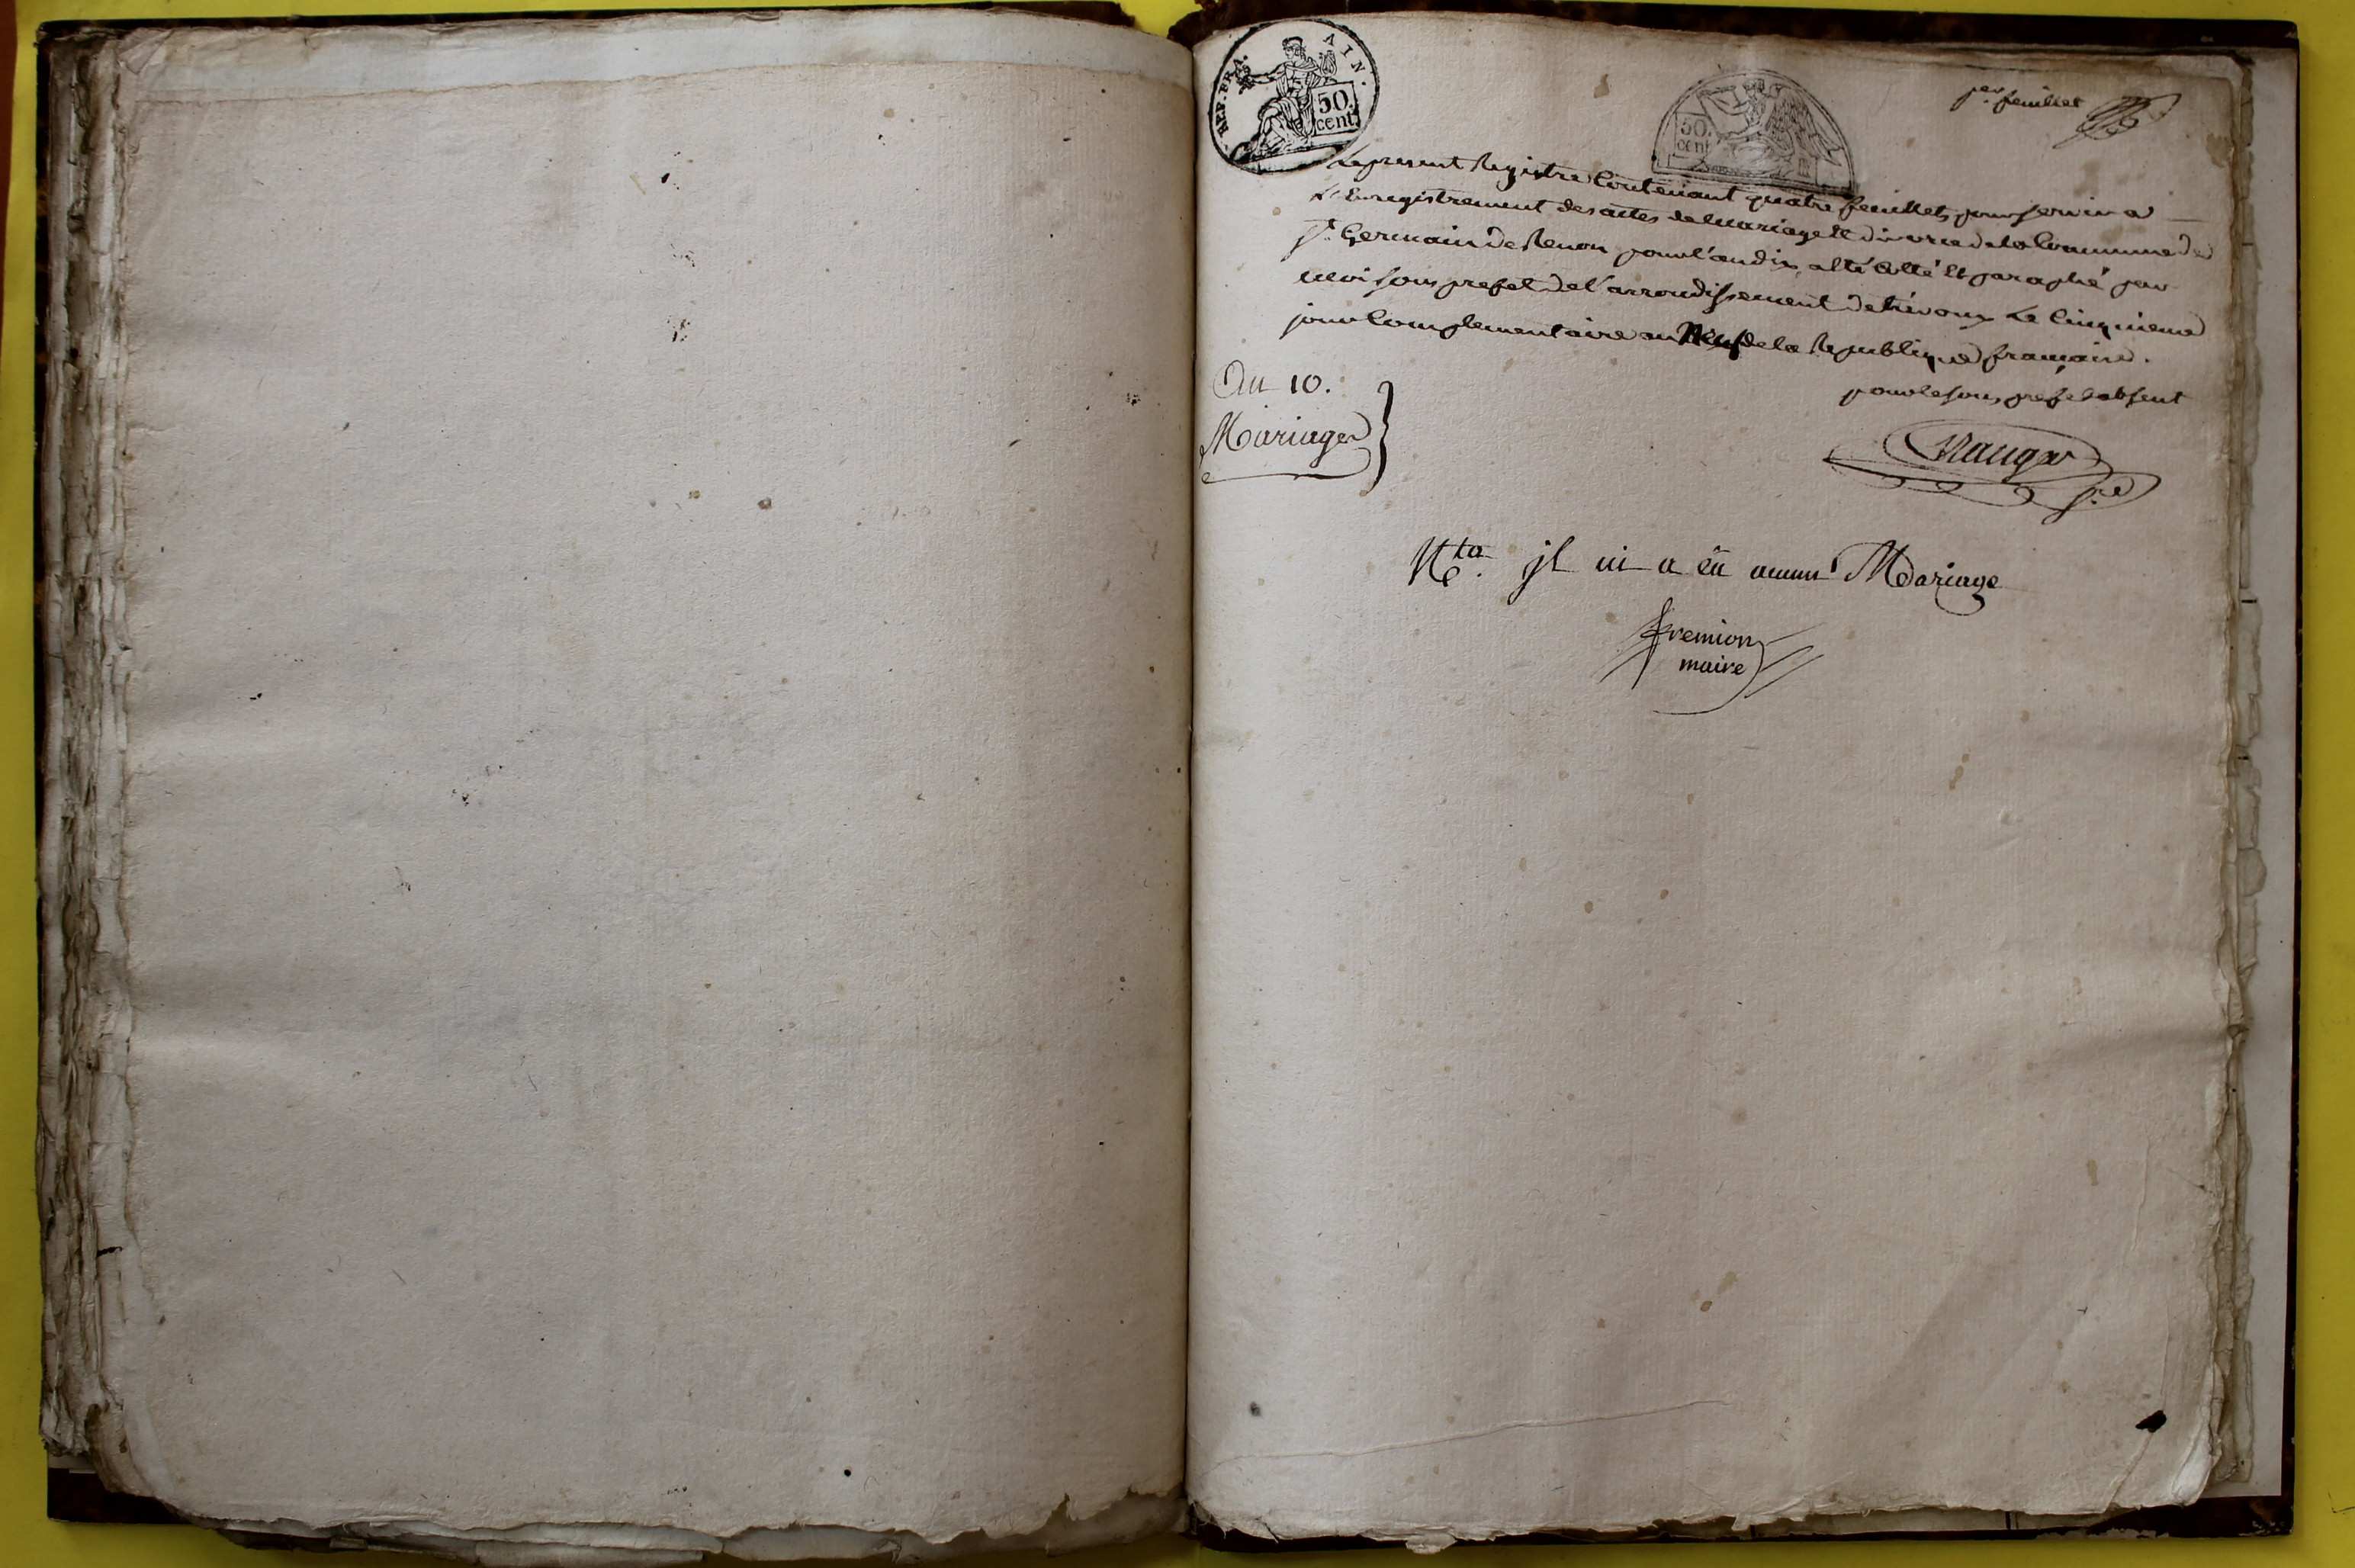 REP. FRA.
AIN.
50.
cent.
50.
cent
1er feuillet
Le present Registre Contenant quatre feuillets pour servir a
L'Enregistrement des actes de Mariage et divorce de la Commune de
St. Germain de Renon pour l'an dix, a été Cotté et paraphé par
moi sous prefet de l'arrondissement de trevoux Le Cinquieme
jour Complementaire an Neuf de la Republique francaise.
pour le sous prefet absent
An 10.
Mariages
Nta. jl ni a eü aucun Mariage
maire